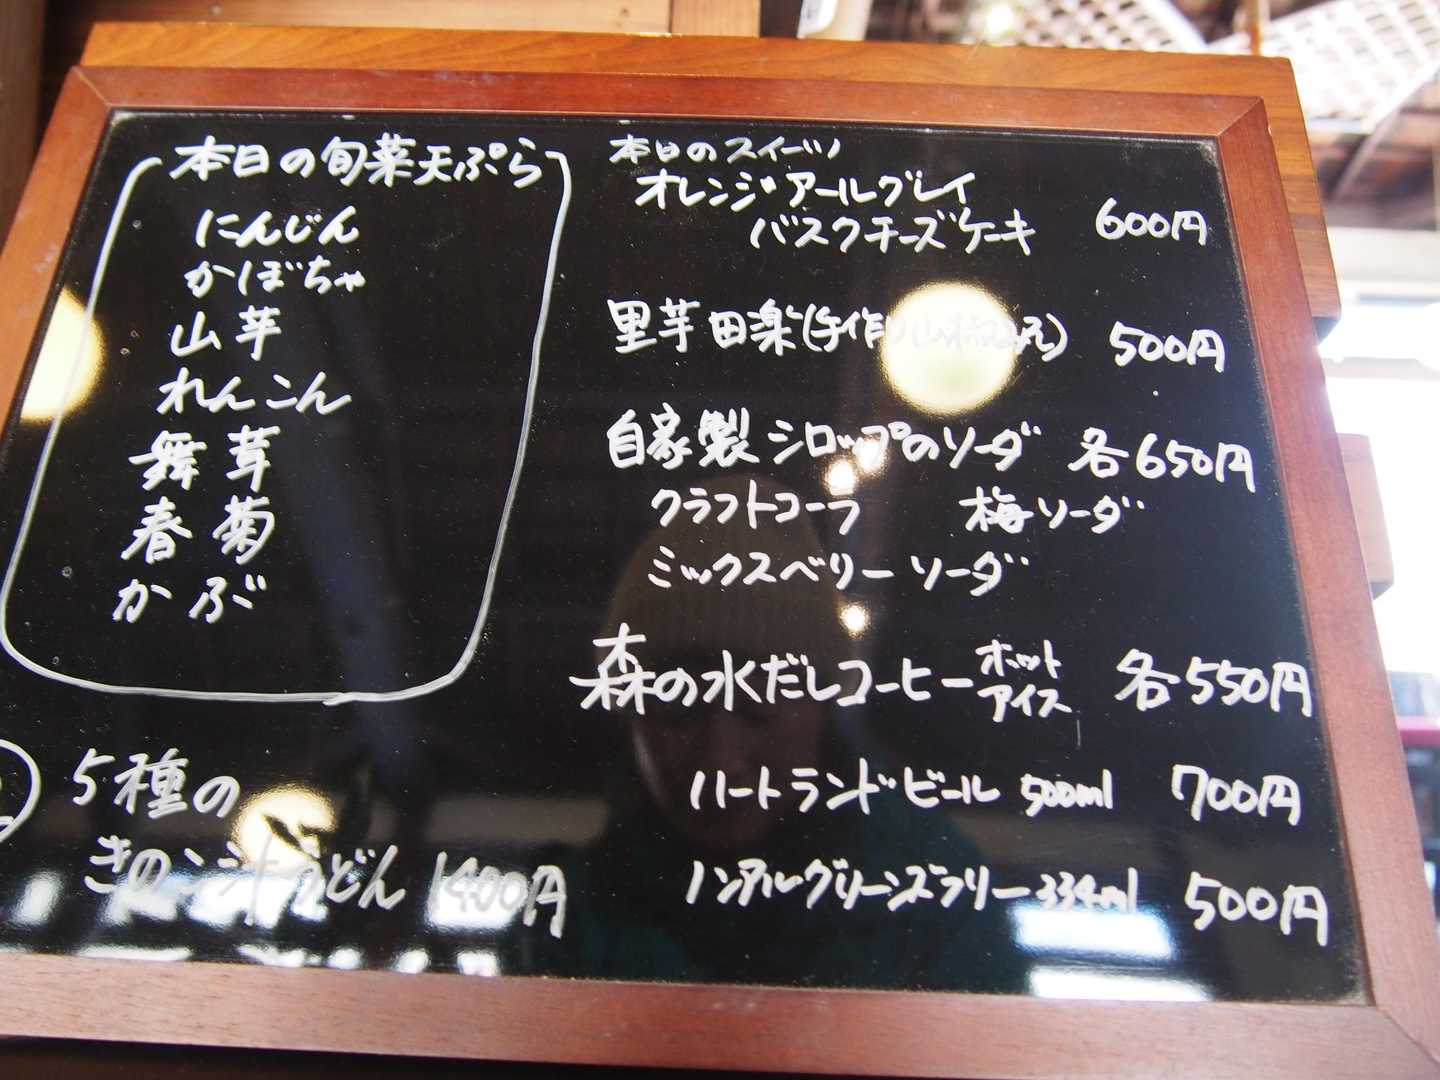 本日の旬菜天ぷら
にんじん
かぼちゃ
山芋
れんこん
舞茸
春菊
かぶ
5種の
きのこ汁うどん 1400円
本日のスイーツ
オレンジ・アールグレイ
バスクチーズケーキ 600円
里芋田楽(手作り山椒みそ) 500円
自家製シロップのソーダ 各650円
クラフトコーラ 梅ソーダ
ミックスベリーソーダ
森の水だしコーヒー ホット アイス 各550円
ハートランドビール 500ml 700円
ノンアルグリーンズフリー 334ml 500円